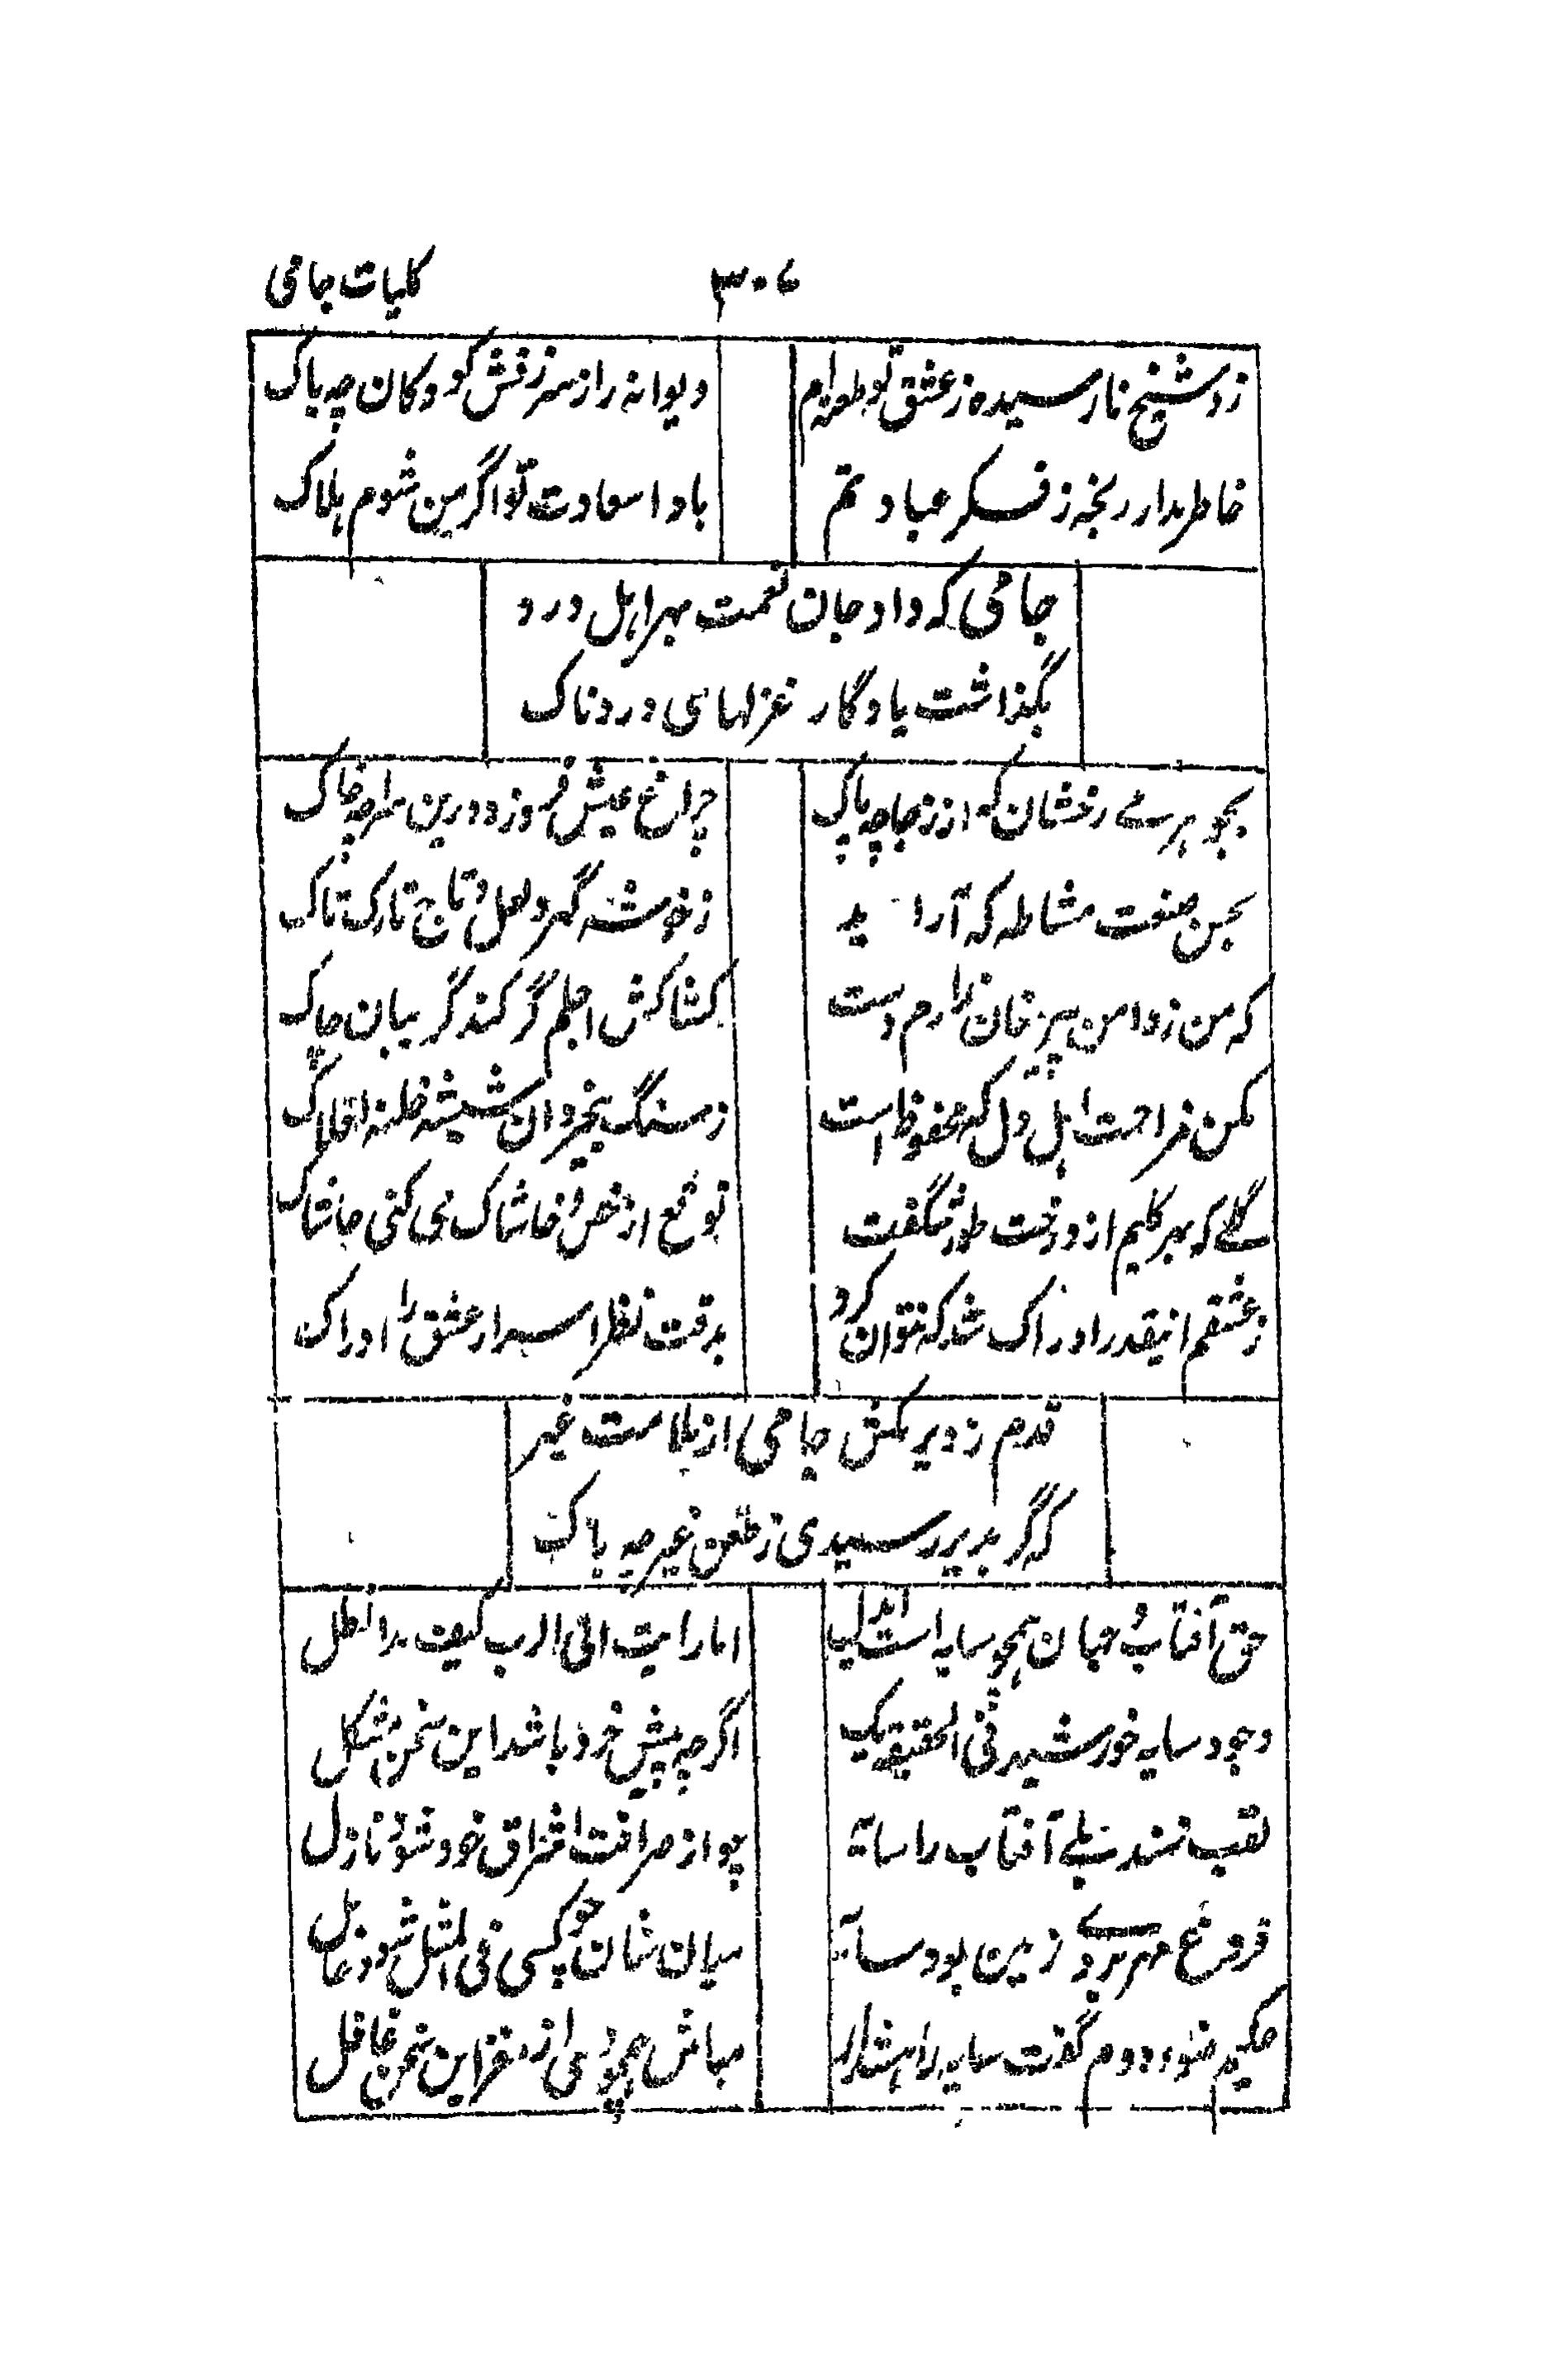 کلیات جامی ۳۰۶
زد شیخ نارسیده ز عشق تو طعنه ام دیوانه را ز سرزنش کودکان چه باک
خاطر مدار رنجه ز فکر عیادتم بادا سعادت تو اگر من شوم هلاک
جامی که داد جان نعمت بهر اهل درد
بگذاشت یادگار غزلهای دردناک
بجوهر مے رخشان که از زجاجه پاک چراغ عیش فروزد درین سراچه خاک
بحسن صنعت مشاطه که آراید ز خوشه گهر و لعل تاج تارک تاک
که من ز دامن پیر مغان ندارم دست کشاکش اجلم گر کند گریبان چاک
مکن مزاحمت اہل دل که محفوظ است ز سنگ بیخردان شیشه خانه افلاک
گلے که بهر کلیم از درخت طور شگفت توقع از خس و خاشاک می کنی حاشاک
ز عشقم اینقدر ادراک شد که نتوان کرد بدقت نظر اسرار عشق را ادراک
قدم ز دیر مکش جامی از ملامت غیر
که گر بدیر رسیدی ز طعن غیر چه باک
حق آفتاب و جهان ہمچو سایه است ایدل اما رایت الی الرب کیف مد الظل
وجود سایه خورشید فی الحقیقه یک اگرچه پیش خرد باشد این سخن مشکل
لقب نهند بلے آفتاب را سایه چو از صرافت اشراق خود شود نازل
فروغ مهر بر وے زمین بود سایه میان شان چو کسی فی المثل شود حائل
حکیم ضوء دوم گفت سایه را ہشدار مباش همچو وی از مغز این سخن غافل